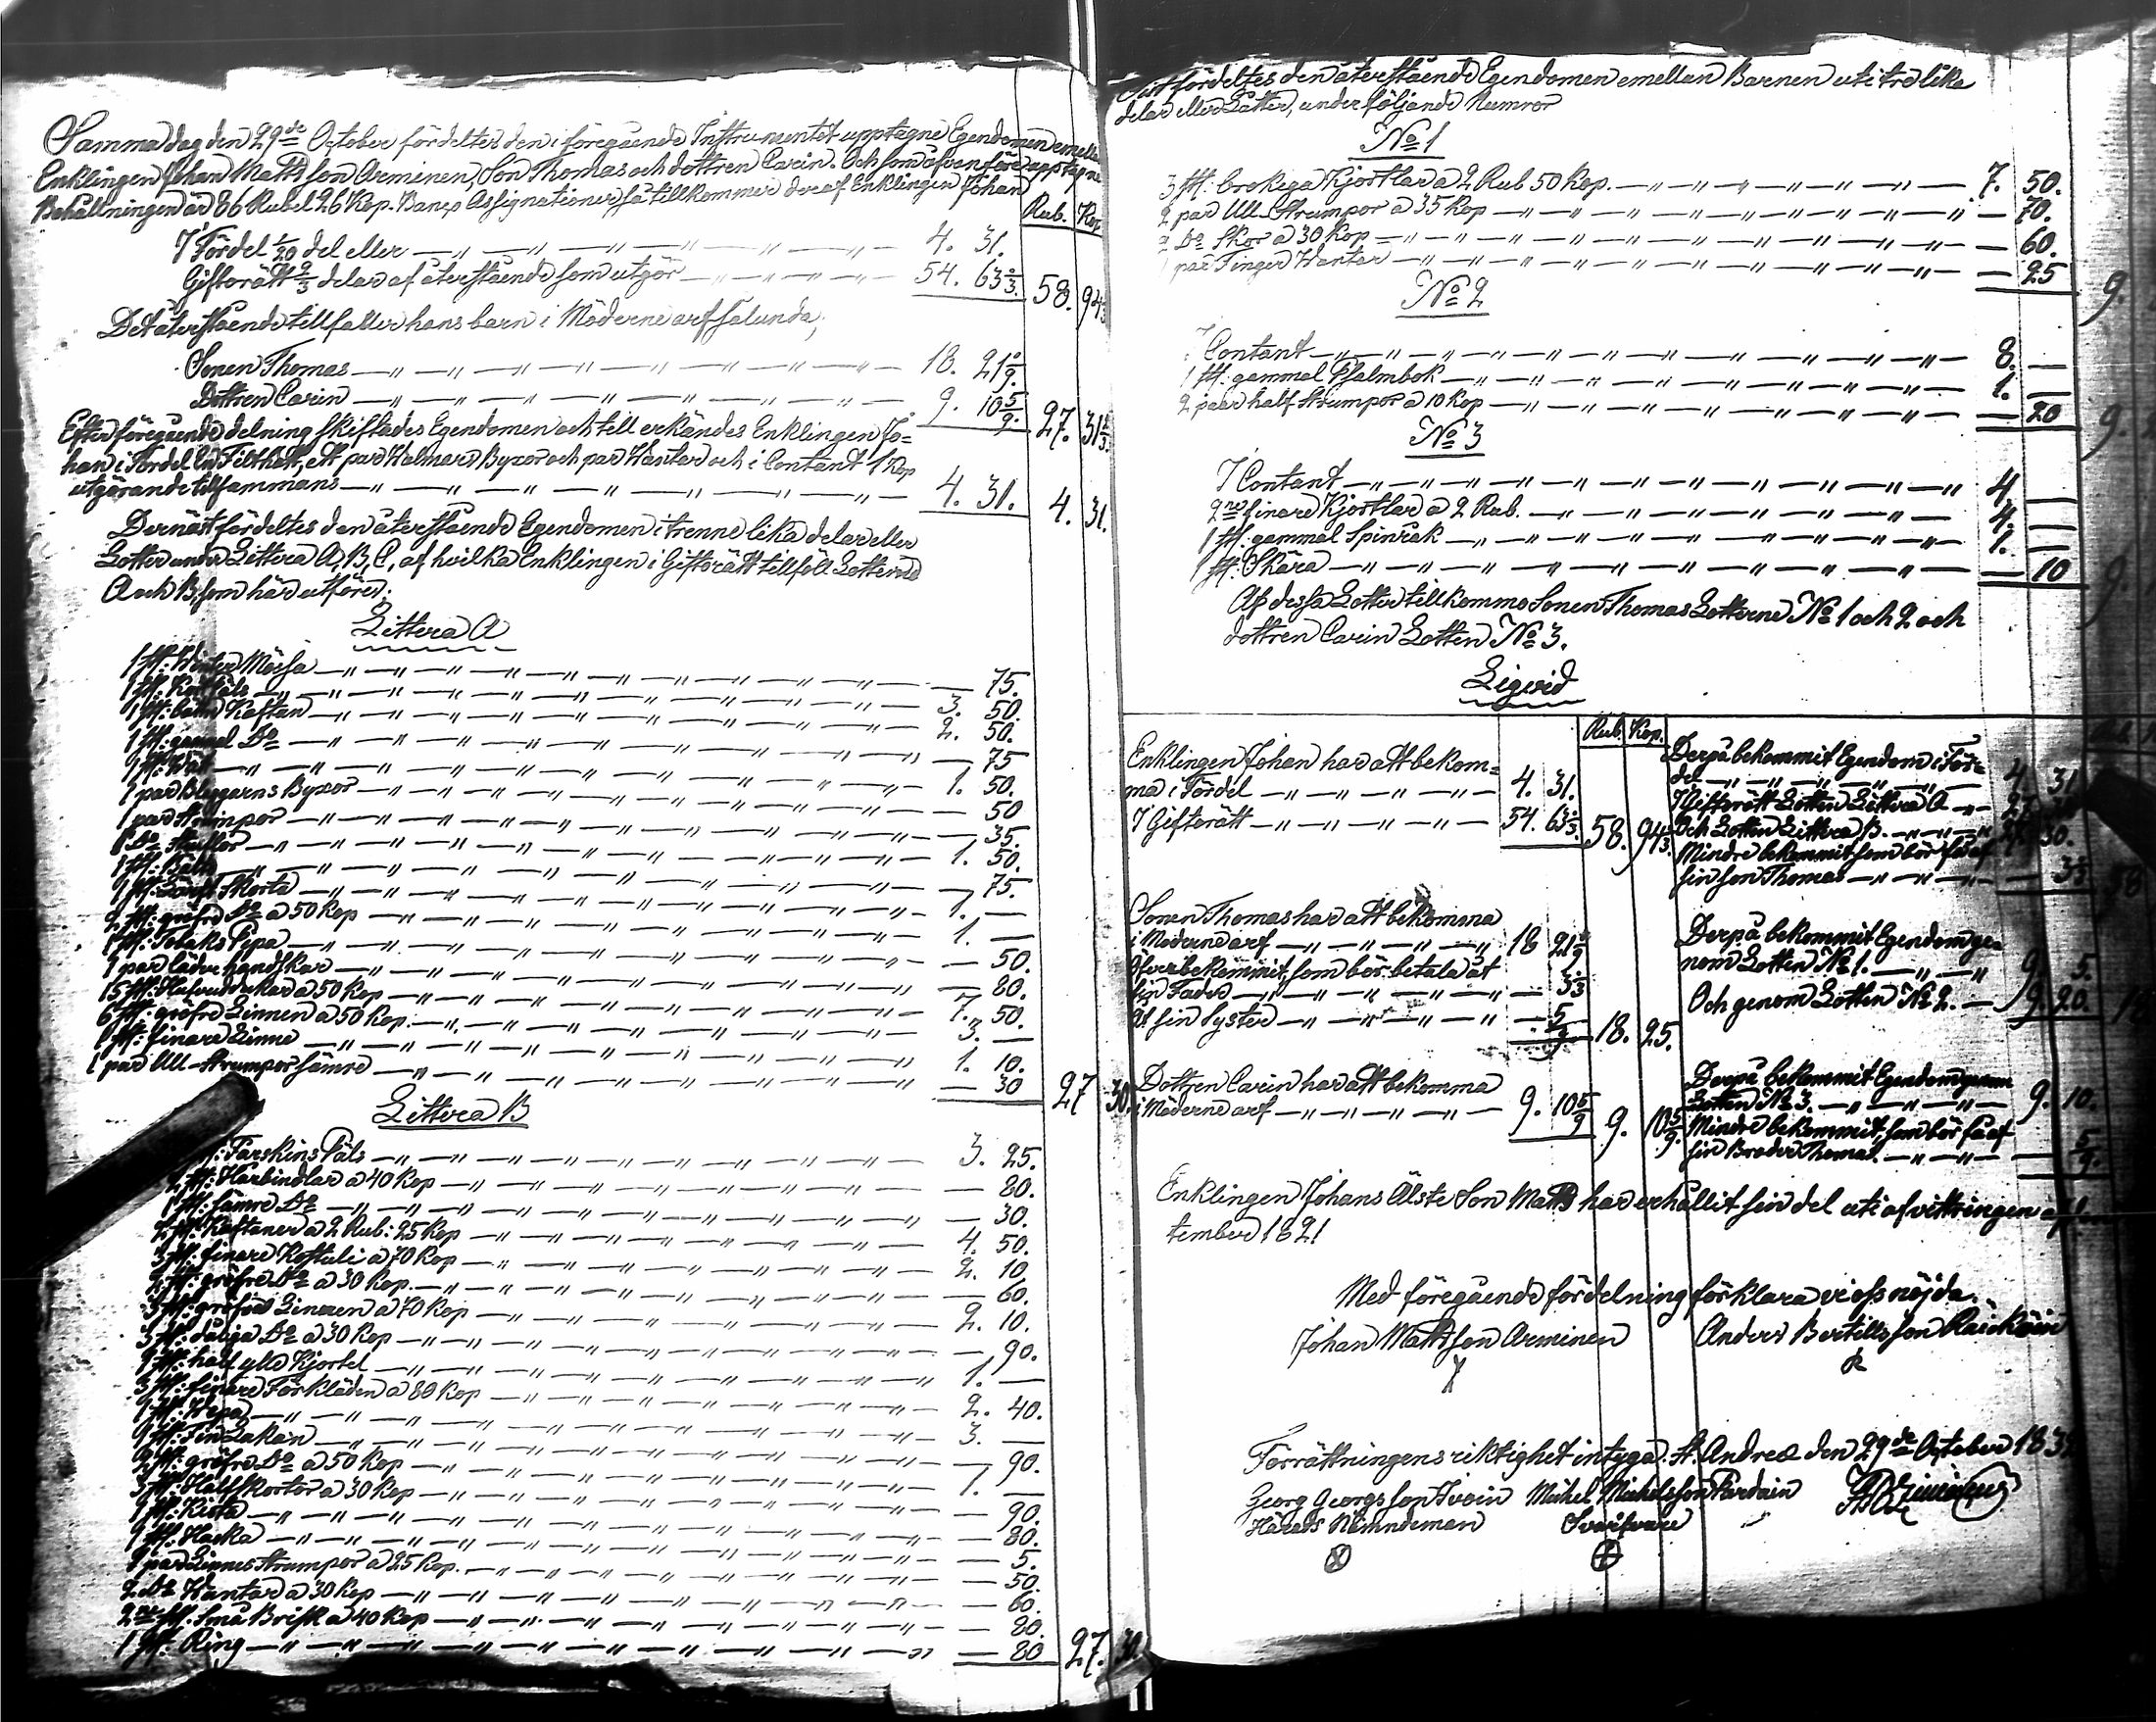 Samma dag den 29de October fördeltes den i föregående Instrumentet upptagne Egendomen emellan
Enklingen Johan Mattsson Arminen, Son Thomas och dottren Carin. Och som äfvenföre upptagne
Behållningen är 86 Rubel 26 Kop. Banco Assignationer så tillkommer deraf Enklingen Johan
Rub. Kop.
I Fördel 1/20 del eller — 4. 31.
Giftorätt 2/3 delar af återstående som utgör — 54. 63 1/3. 58. 94 1/3
Det återstående tillfaller hans barn i Möderne arf sålunda;
Sonen Thomas — 18. 21 1/9.
Dottren Carin — 9. 10 5/9. 27. 31 2/3
Efter föregående delning skiftades Egendomen och tillerkändes Enklingen Jo=
han i Fördel en Filthatt, ett par Walmars Byxor och par Wantar och i Contant 1 Kop
utgörande tillsammans — 4. 31. 4. 31.
Dernäst fördeltes den återstående Egendomen i trenne lika delar eller
Lotter under Littera A, B, C, af hvilka Enklingen i Giftorätt tillföll Lotterne
A och B, som här utföres:
Littera A
1 st: Winter Mössa — 75.
1 st: — 3. 50.
1 st: Kaftan — 2. 50.
1 st: gammal Do — 75
1 st: — 1. 50.
1 par Blaggarns Byxor — 50
1 par Strumpor — 35.
1 Do Stöflor — 1. 50.
1 st: — 75.
1 st: Skorta — 1. —
2 st: gröfre Do a 50 Kop — 1. —
1 st: Tobaks Pipa — 50.
1 par läder handskar — 80.
15 st: a 50 Kop — 7. 50.
6 st: gröfre Linnen a 50 Kop. — 3. —
1 st: finare Linne — 1. 10.
1 par Ull-Strumpor sämre — 30 27 30.
Littera B
Fårskins Päls — 3. 25.
2 st: Hårbindlar a 40 Kop — 80.
1 st: sämre Do — 30.
2 st: Kaftaner a 2 Rub: 25 Kop — 4. 50.
3 st: finare a 70 Kop — 2. 10
2 st: gröfre Do a 30 Kop. — 60.
3 st: gröfre Linnen a 70 Kop — 2. 10.
3 st: dåliga Do a 30 Kop — 90.
1 st: half ylle Kjortel — 1. —
3 st: finare Förkläden a 80 Kop — 2. 40.
1 st: Wepa — 3. —
1 st: Fin Lakan — 90.
2 st: gröfre Do a 50 Kop — 1. —
3 st: Halfskortor a 30 Kop — 90.
1 st: Kista — 80.
1 st: Hacka — 5.
2 par Linnes Strumpor a 25 Kop. — 50.
2 Do Wantar a 30 Kop — 60.
2ne st. Små Brisk a 40 Kop — 80.
1 st: Ring — 80 27. 30.
Sist fördeltes den återstående Egendomen emellan Barnen uti tre lika
delar eller Lotter, under följande Numror
No 1
3 st: brokega Kjortlar a 2 Rub 50 Kop. — 7. 50.
2 par Ull Strumpor a 35 Kop — 70.
2 Do Skor a 30 Kop — 60.
1 par Finger Wantar — 25 9.
No 2
I Contant — 8. —
1 st: gammal Psalmbok — 1. —
2 par half Strumpor a 10 Kop — 20 9.
No 3
I Contant — 4. —
2ne finare Kjortlar a 2 Rub. — 4. —
1 st: gammal Spinrak — 1. —
1 st: Skära — 10 9.
Af dessa Lotter tillkommo Sonen Thomas Lotterne No 1 och 2 och
dottren Carin Lotten No 3.
Liqvid
Rub. Kop.
Enklingen Johan har att bekom=
ma i Fördel — 4. 31.
I Giftorätt — 54. 63 1/3. 58. 94 1/3.
Derpå bekommit Egendom i För=
del — 4. 31
I Giftorätt Lotten Littera A — 27. 30
Och Lotten Littera B. — 27. 30.
Mindre bekommit som bör få af
sin son Thomas — 3 1/3 58
Sonen Thomas har att bekomma
i Möderne arf — 18 21 1/9
Öfverbekommit, som bör betala åt
sin Fader — 3 1/3
åt sin Syster — 5/9. 18. 25.
Derpå bekommit Egendom ge=
nom Lotten No 1. — 9. 5.
Och genom Lotten No 2. — 9. 20. 18
Dottren Carin har att bekomma
i Möderne arf — 9. 10 5/9 9. 10 5/9.
Derpå bekommit Egendom genom
Lotten No 3. — 9. 10.
Mindre bekommit, som bör få af
sin Broder Thomas. — 5/9.
Enklingen Johans Älste Son Matts har erhållit sin del uti afvittringen af
tember 1821
Med föregående fördelning förklara vi oss nöjda.
Johan Mattsson Arminen Anders Bertillsson Räikköin
Förrättningens riktighet intyga. St. Andreæ den 29de October 183
Georg Georgsson Ivoin Michel Michelsson Pardain
Härads Nämndeman